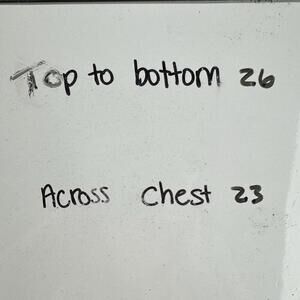 Top to bottom 26
Across Chest 23